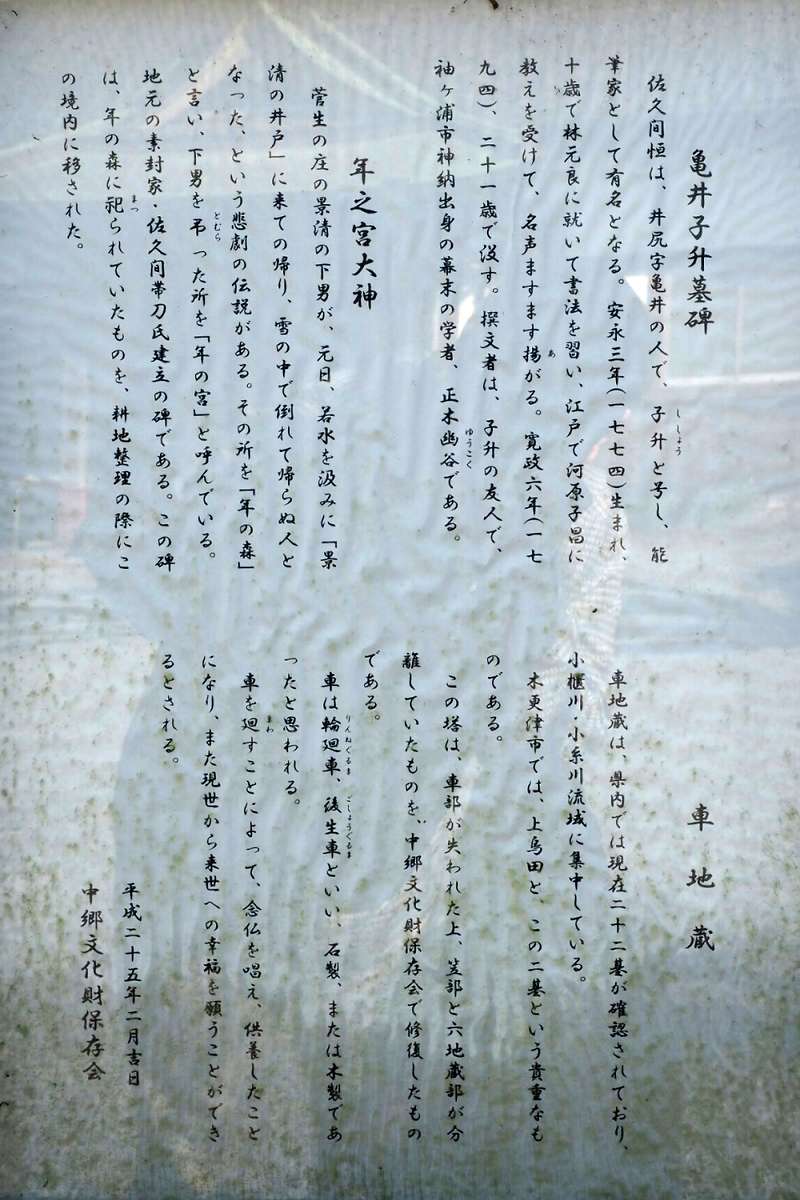 亀井子升墓碑
佐久間恒は、井尻字亀井の人で、子升と号し、能
ししょう
筆家として有名となる。安永三年(一七七四)生まれ、
十歳で林元良に就いて書法を習い、江戸で河原子昌に
教えを受けて、名声ますます揚がる。寛政六年(一七
あ
九四)、二十一歳で没す。撰文者は、子升の友人で、
袖ヶ浦市神納出身の幕末の学者、正木幽谷である。
ゆうこく
年之宮大神
菅生の庄の景清の下男が、元日、若水を汲みに「景
清の井戸」に来ての帰り、雪の中で倒れて帰らぬ人と
なった、という悲劇の伝説がある。その所を「年の森」
と言い、下男を弔った所を「年の宮」と呼んでいる。
とむら
地元の素封家・佐久間帯刀氏建立の碑である。この碑
は、年の森に祀られていたものを、耕地整理の際にこ
まつ
の境内に移された。
車地蔵
車地蔵は、県内では現在二十二基が確認されており、
小櫃川・小糸川流域に集中している。
木更津市では、上烏田と、この二基という貴重なも
のである。
この塔は、車部が失われた上、笠部と六地蔵部が分
離していたものを、中郷文化財保存会で修復したもの
である。
車は輪廻車、後生車といい、石製、または木製であ
りんねぐるま ごしょうぐるま
ったと思われる。
車を廻すことによって、念仏を唱え、供養したこと
まわ
になり、また現世から来世への幸福を願うことができ
るとされる。
平成二十五年二月吉日
中郷文化財保存会